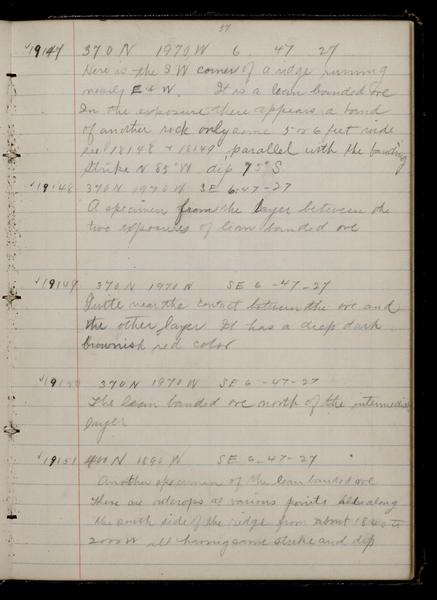 19147 370 N 1970 W 6 47 27
Here is the S W corner of a ridge running
nearly E & W. It is a lean banded ore
In the exposure there appears a band
of another rock only some 5 or 6 feet wide
see 19148 & 19149, parallel with the banding
Strike N 85° W dip 75° S
19148 370 N 1970 W SE 6-47-27
A specimen from the layer between the
two exposures of lean banded ore
19149 370 N 1970 W SE 6-47-27
Quite near the contact between the ore and
the other layer It has a deep dark
brownish red color
19150 370 N 1970 W SE 6-47-27
The lean banded ore north of the intermediate
layer
19151 400 N 1890 W SE 6-47-27
Another specimen of the lean banded ore
There are outcrops at various points all along
the south side of the ridge from about 1840 to
2000 W all having same strike and dip